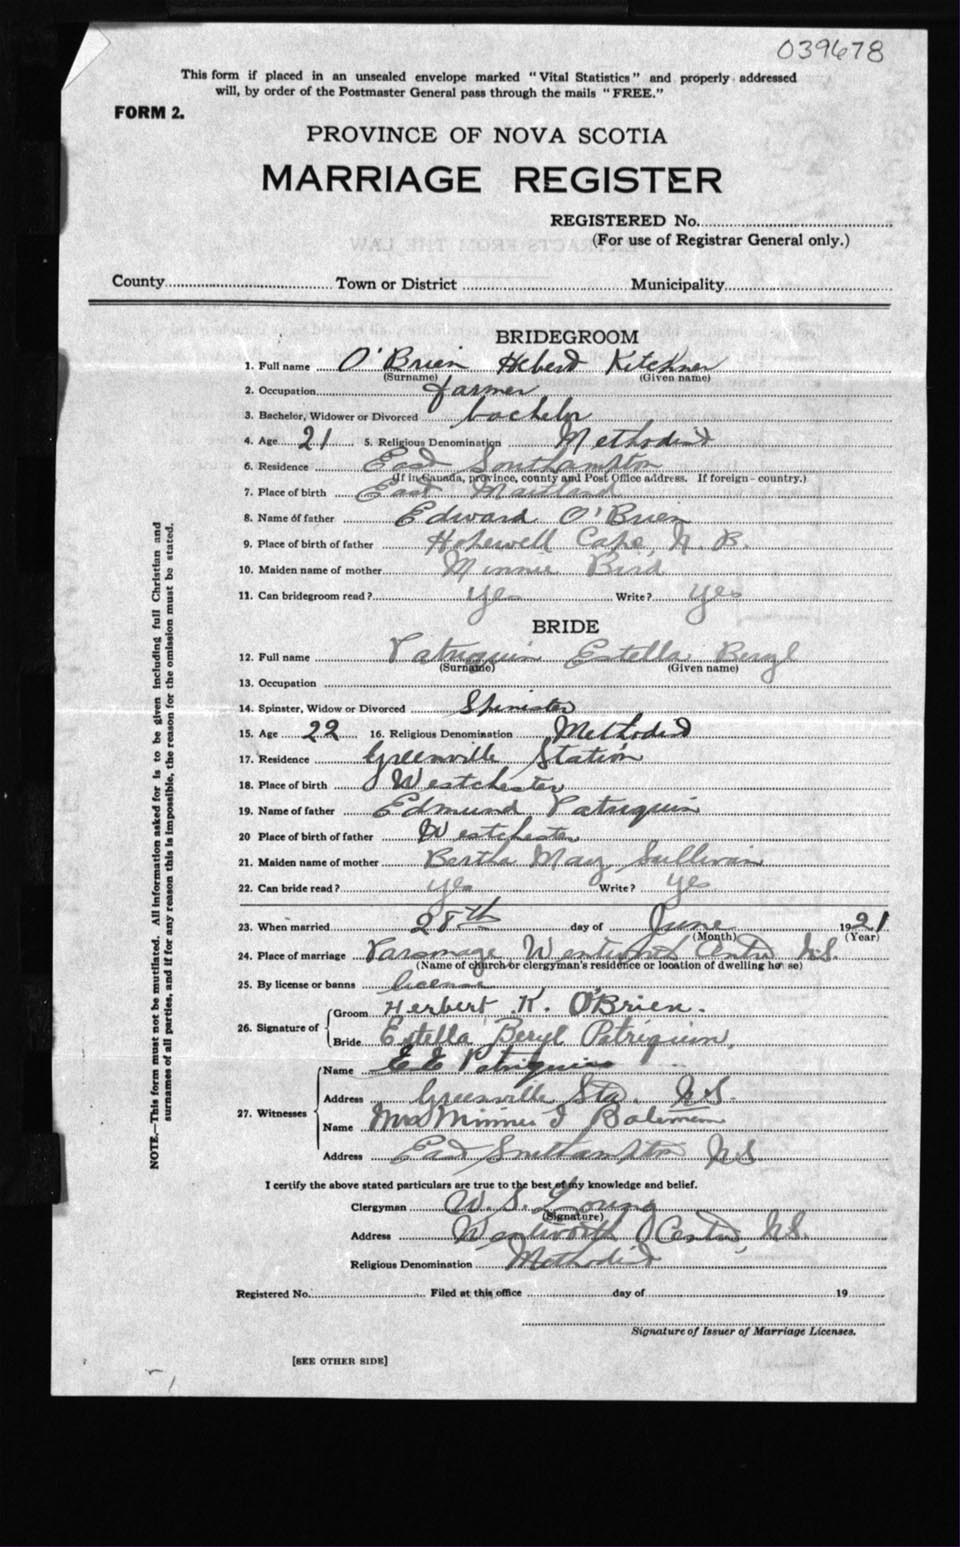 039678
This form if placed in an unsealed envelope marked "Vital Statistics" and properly addressed
will, by order of the Postmaster General pass through the mails "FREE."
FORM 2.
PROVINCE OF NOVA SCOTIA
MARRIAGE REGISTER
REGISTERED No.
(For use of Registrar General only.)
County Town or District Municipality
BRIDEGROOM
1. Full name O'Brien Heberd Kitchner
(Surname) (Given name)
2. Occupation farmer
3. Bachelor, Widower or Divorced bachelor
4. Age 21 5. Religious Denomination Methodist
6. Residence East Southampton
(If in Canada, province, county and Post Office address. If foreign - country.)
7. Place of birth East Maitland
8. Name of father Edward O'Brien
9. Place of birth of father Hopewell Cape, N.B.
10. Maiden name of mother Minnie Bird
11. Can bridegroom read? Yes Write? Yes
BRIDE
12. Full name Patriquin Estella Beryl
(Surname) (Given name)
13. Occupation
14. Spinster, Widow or Divorced Spinster
15. Age 22 16. Religious Denomination Methodist
17. Residence Greenville Station
18. Place of birth Westchester
19. Name of father Edmund Patriquin
20 Place of birth of father Westchester
21. Maiden name of mother Bertha May Sullivan
22. Can bride read? Yes Write? Yes
23. When married 28th day of June 1921
(Month) (Year)
24. Place of marriage Parsonage Wentworth Centre N.S.
(Name of church or clergyman's residence or location of dwelling house)
25. By license or banns license
26. Signature of Groom Herbert K. O'Brien.
Bride Estella Beryl Patriquin.
27. Witnesses Name E E Patriquin
Address Greenville Sta. N.S.
Name Mrs Minnie I Bateman
Address East Southampton N.S.
I certify the above stated particulars are true to the best of my knowledge and belief.
Clergyman W. S. Young
(Signature)
Address Wentworth Centre, N.S.
Religious Denomination Methodist
Registered No. Filed at this office day of 19
Signature of Issuer of Marriage Licenses.
[SEE OTHER SIDE]
NOTE.—This form must not be mutilated. All information asked for is to be given including full Christian and
surnames of all parties, and if for any reason this is impossible, the reason for the omission must be stated.